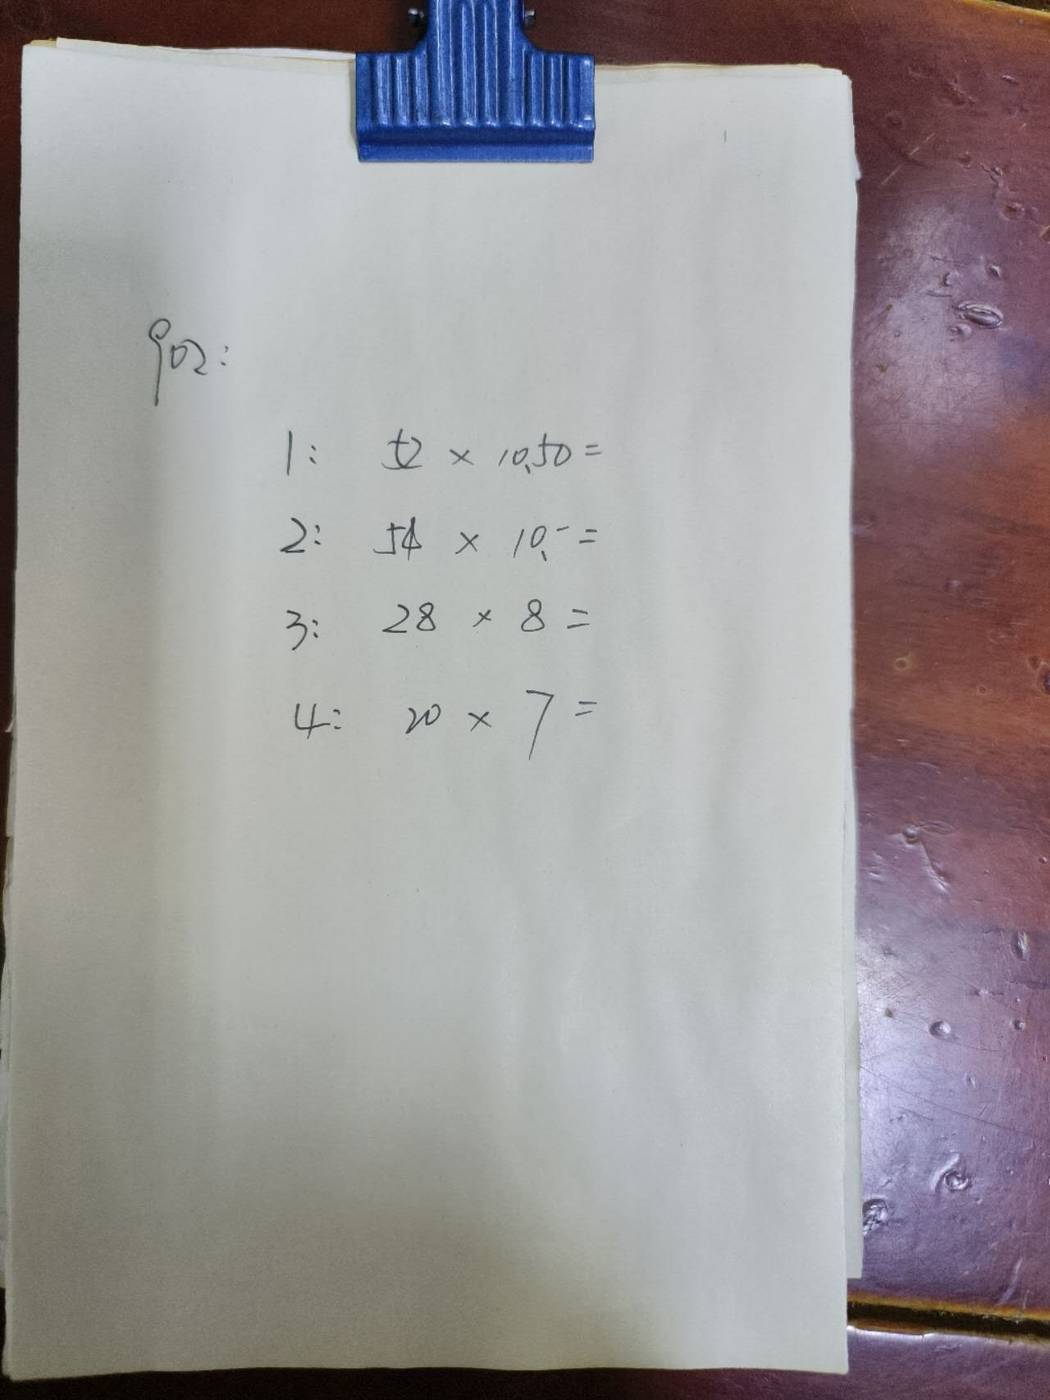 902:
1: 52 × 10,50 =
2: 54 × 10,- =
3: 28 × 8 =
4: 20 × 7 =